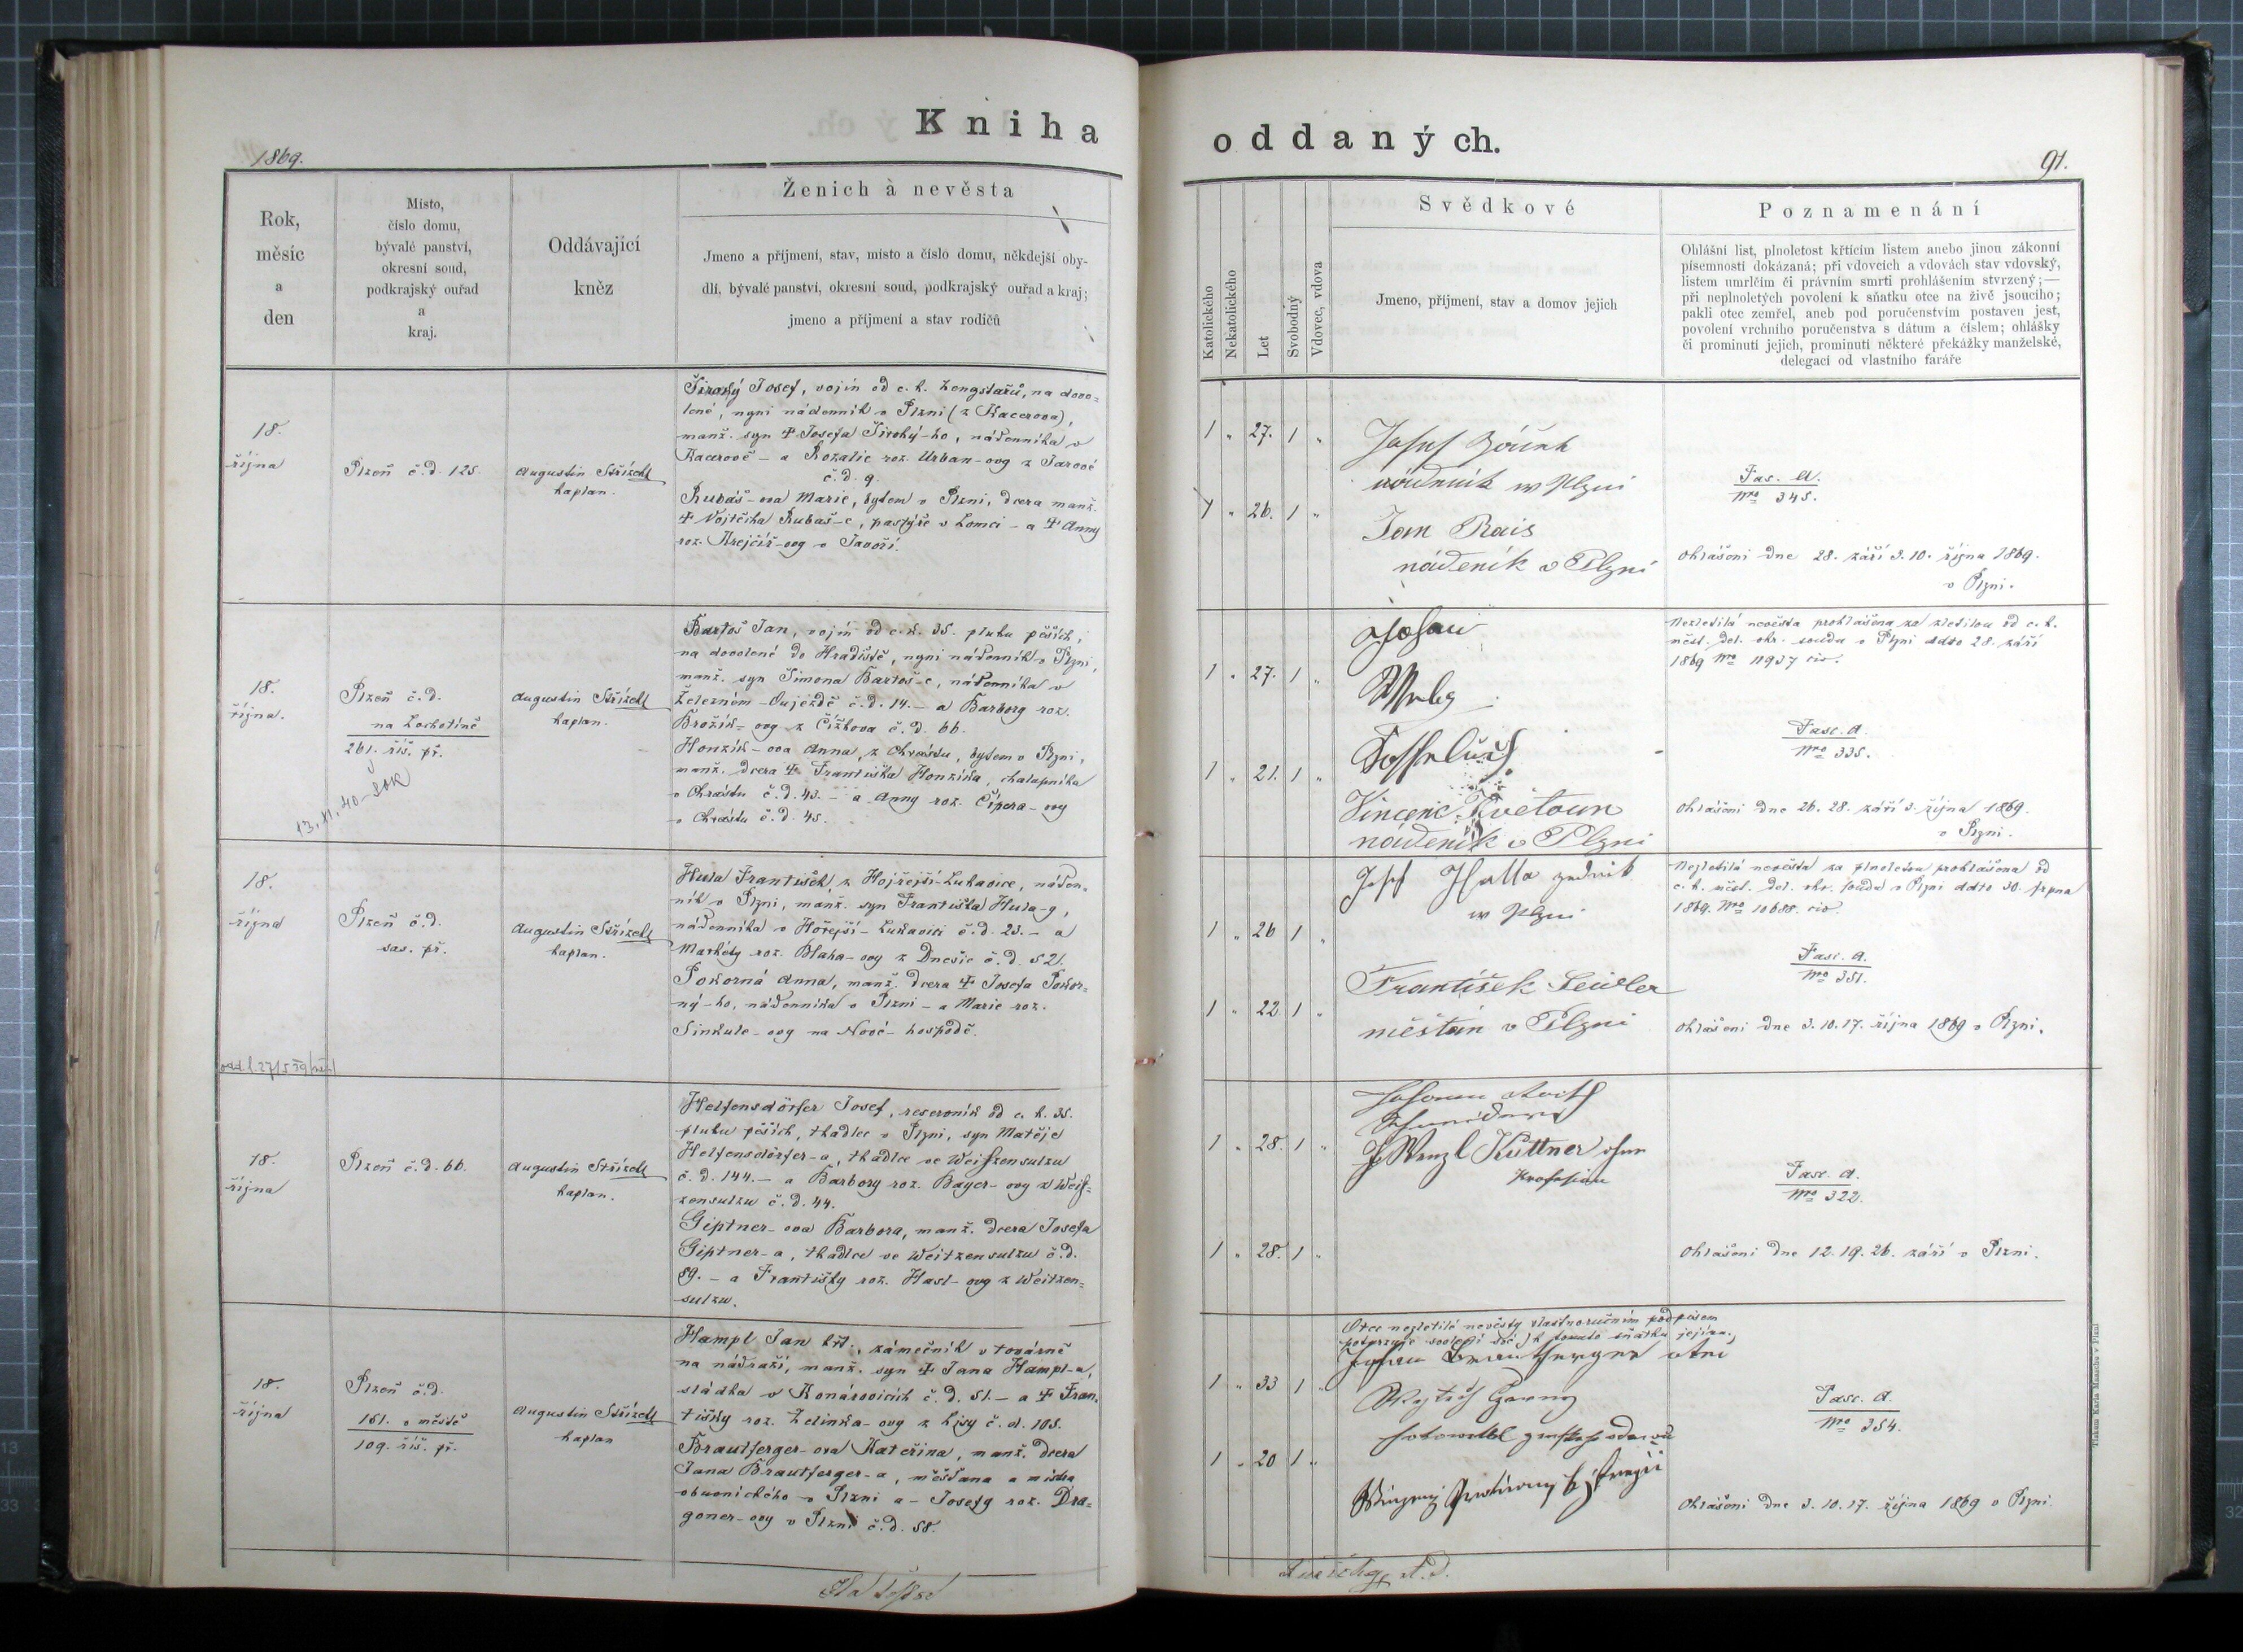 Kniha
oddaných.
1869.
91.
Rok,
měsíc
a
den
Místo,
číslo domu,
bývalé panství,
okresní soud,
podkrajský ouřad
a
kraj.
Oddávající
kněz
Ženich à nevěsta
Jmeno a příjmení, stav, místo a číslo domu, někdejší oby-
dlí, bývalé panství, okresní soud, podkrajský ouřad a kraj;
jmeno a příjmení a stav rodičů
Katolického
Nekatolického
Let
Svobodný
Vdovec, vdova
Svědkové
Jmeno, příjmení, stav a domov jejich
Poznamenání
Ohlášní list, plnoletost křticím listem anebo jinou zákonní
písemností dokázaná; při vdovcích a vdovách stav vdovský,
listem umrlčím či právním smrti prohlášením stvrzený;—
při neplnoletých povolení k sňatku otce na živě jsoucího;
pakli otec zemřel, aneb pod poručenstvím postaven jest,
povolení vrchního poručenstva s dátum a číslem; ohlášky
či prominutí jejich, prominutí některé překážky manželské,
delegací od vlastního faráře
18.
října
Plzeň č.d. 125.
Augustin Střízek
kaplan.
Široký Josef, vojín od c. k. Zengstařů, na dovo=
lené, nyní nádenník v Plzni (z Kacerova),
manž. syn † Josefa Široký-ho, nádenníka v
Kacerově – a Rozalie roz. Urban-ovy z Jarové
č. d. 9.
Rubáš-ova Marie, bytem v Plzni, dcera manž.
† Vojtěcha Rubáš-e, pastýře v Lomci – a † Anny
roz. Krejčíř-ovy v Javoří.
1 „ 27. 1 „
1 „ 26. 1 „
Josef
nádeník w Plzni
Jan Rais
nádeník v Plzni
Fas. A.
Nro 345.
Ohlášeni dne 28. září 3. 10. října 1869.
v Plzni.
18.
října.
Plzeň č.d.
na Lochotíně
261. říš. př.
13. 11. 40
Augustin Střízek
kaplan.
Bartoš Jan, vojín od c. k. 35. pluku pěších,
na dovolené do Hradiště, nyní nádenník v Plzni,
manž. syn Šimona Bartoš-e, nádenníka v
Železném-Oujezdě č. d. 14. – a Barbory roz.
Brožík-ovy z Čížkova č. d. 66.
Honzík-ova Anna, z Chrástu, bytem v Plzni,
manž. dcera † Františka Honzíka, chalupníka
v Chrástu č. d. 43. – a Anny roz. Čipera-ovy
v Chrástu č. d. 45.
1 „ 27. 1 „
1 „ 21. 1 „
Johan
Vincenc Květoun
nádeník v Plzni
Nezletilá nevěsta prohlášena za zletilou od c. k.
měst. del. okr. soudu v Plzni ddto 28. září
1869 Nro 11937 civ.
Fasc. A.
Nro 335.
Ohlášeni dne 26. 28. září 3. října 1869.
v Plzni.
18.
října
Plzeň č. d.
sas. př.
Augustin Střízek
kaplan.
Hula František, z Hořejší-Lukavice, náden=
ník v Plzni, manž. syn Františka Hula-y,
nádenníka v Hořejší-Lukavici č. d. 23. – a
Markéty roz. Blaha-ovy z Dnešic č. d. 52.
Pokorná Anna, manž. dcera † Josefa Pokor=
ný-ho, nádenníka v Plzni – a Marie roz.
Sinkule-ovy na Nové-hospodě.
1 „ 26 1 „
1 „ 22 1 „
Josef Hatla zedník
w Plzni
František Seidler
měšťan v Plzni
Nezletilá nevěsta za plnoletou prohlášena od
c. k. měst. del. okr. soudu v Plzni ddto 30. srpna
1869. Nro 10688. civ.
Fasc. A.
Nro 351.
Ohlášeni dne 3. 10. 17. října 1869 v Plzni.
18.
října
Plzeň č. d. 66.
Augustin Střízek
kaplan.
Helfensdörfer Josef, reservník od c. k. 35.
pluku pěších, tkadlec v Plzni, syn Matěje
Helfensdörfer-a, tkadlce ve Weißensulzu
č. d. 144. – a Barbory roz. Bayer-ovy z Weiß=
zensulzu č. d. 44.
Giptner-ova Barbora, manž. dcera Josefa
Giptner-a, tkadlce ve Weitzensulzu č. d.
89. – a Františky roz. Hasl-ovy z Weitzen=
sulzu.
1 „ 28. 1 „
1 „ 28. 1 „
Wenzl Küttner ohne
Profession
Fasc. A.
Nro 322.
Ohlášeni dne 12. 19. 26. září v Plzni.
18.
října
Plzeň č. d.
161. v městě
109. říš. př.
Augustin Střízek
kaplan
Hampl Jan křt., zámečník v továrně
na nádraží, manž. syn † Jana Hampl-a,
sládka v Konárovicích č. d. 51. – a † Fran=
tišky roz. Zelinka-ovy z Lysy č. d. 105.
Brautferger-ova Kateřina, manž. dcera
Jana Brautferger-a, měšťana a mistra
obuvnického v Plzni a – Josefy roz. Dra=
goner-ovy v Plzni č. d. 58.
1 „ 33 1 „
1 „ 20 1 „
Otec nezletilé nevěsty vlastnoručním podpisem
Johan Brautferger otec
Fasc. A.
Nro 354.
Ohlášeni dne 3. 10. 17. října 1869 v Plzni.
Tiskem Karla Maasche v Plzni